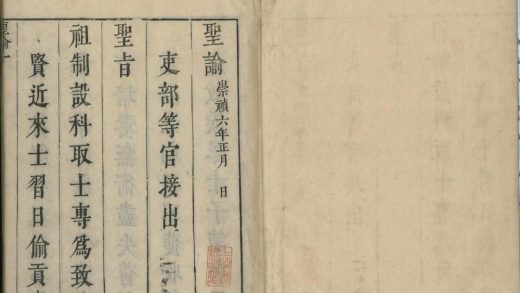 聖諭 崇禎六年正月 日
吏部等官接出
聖旨
祖制設科取士專爲致
賢近來士習日偷貢
聖諭一